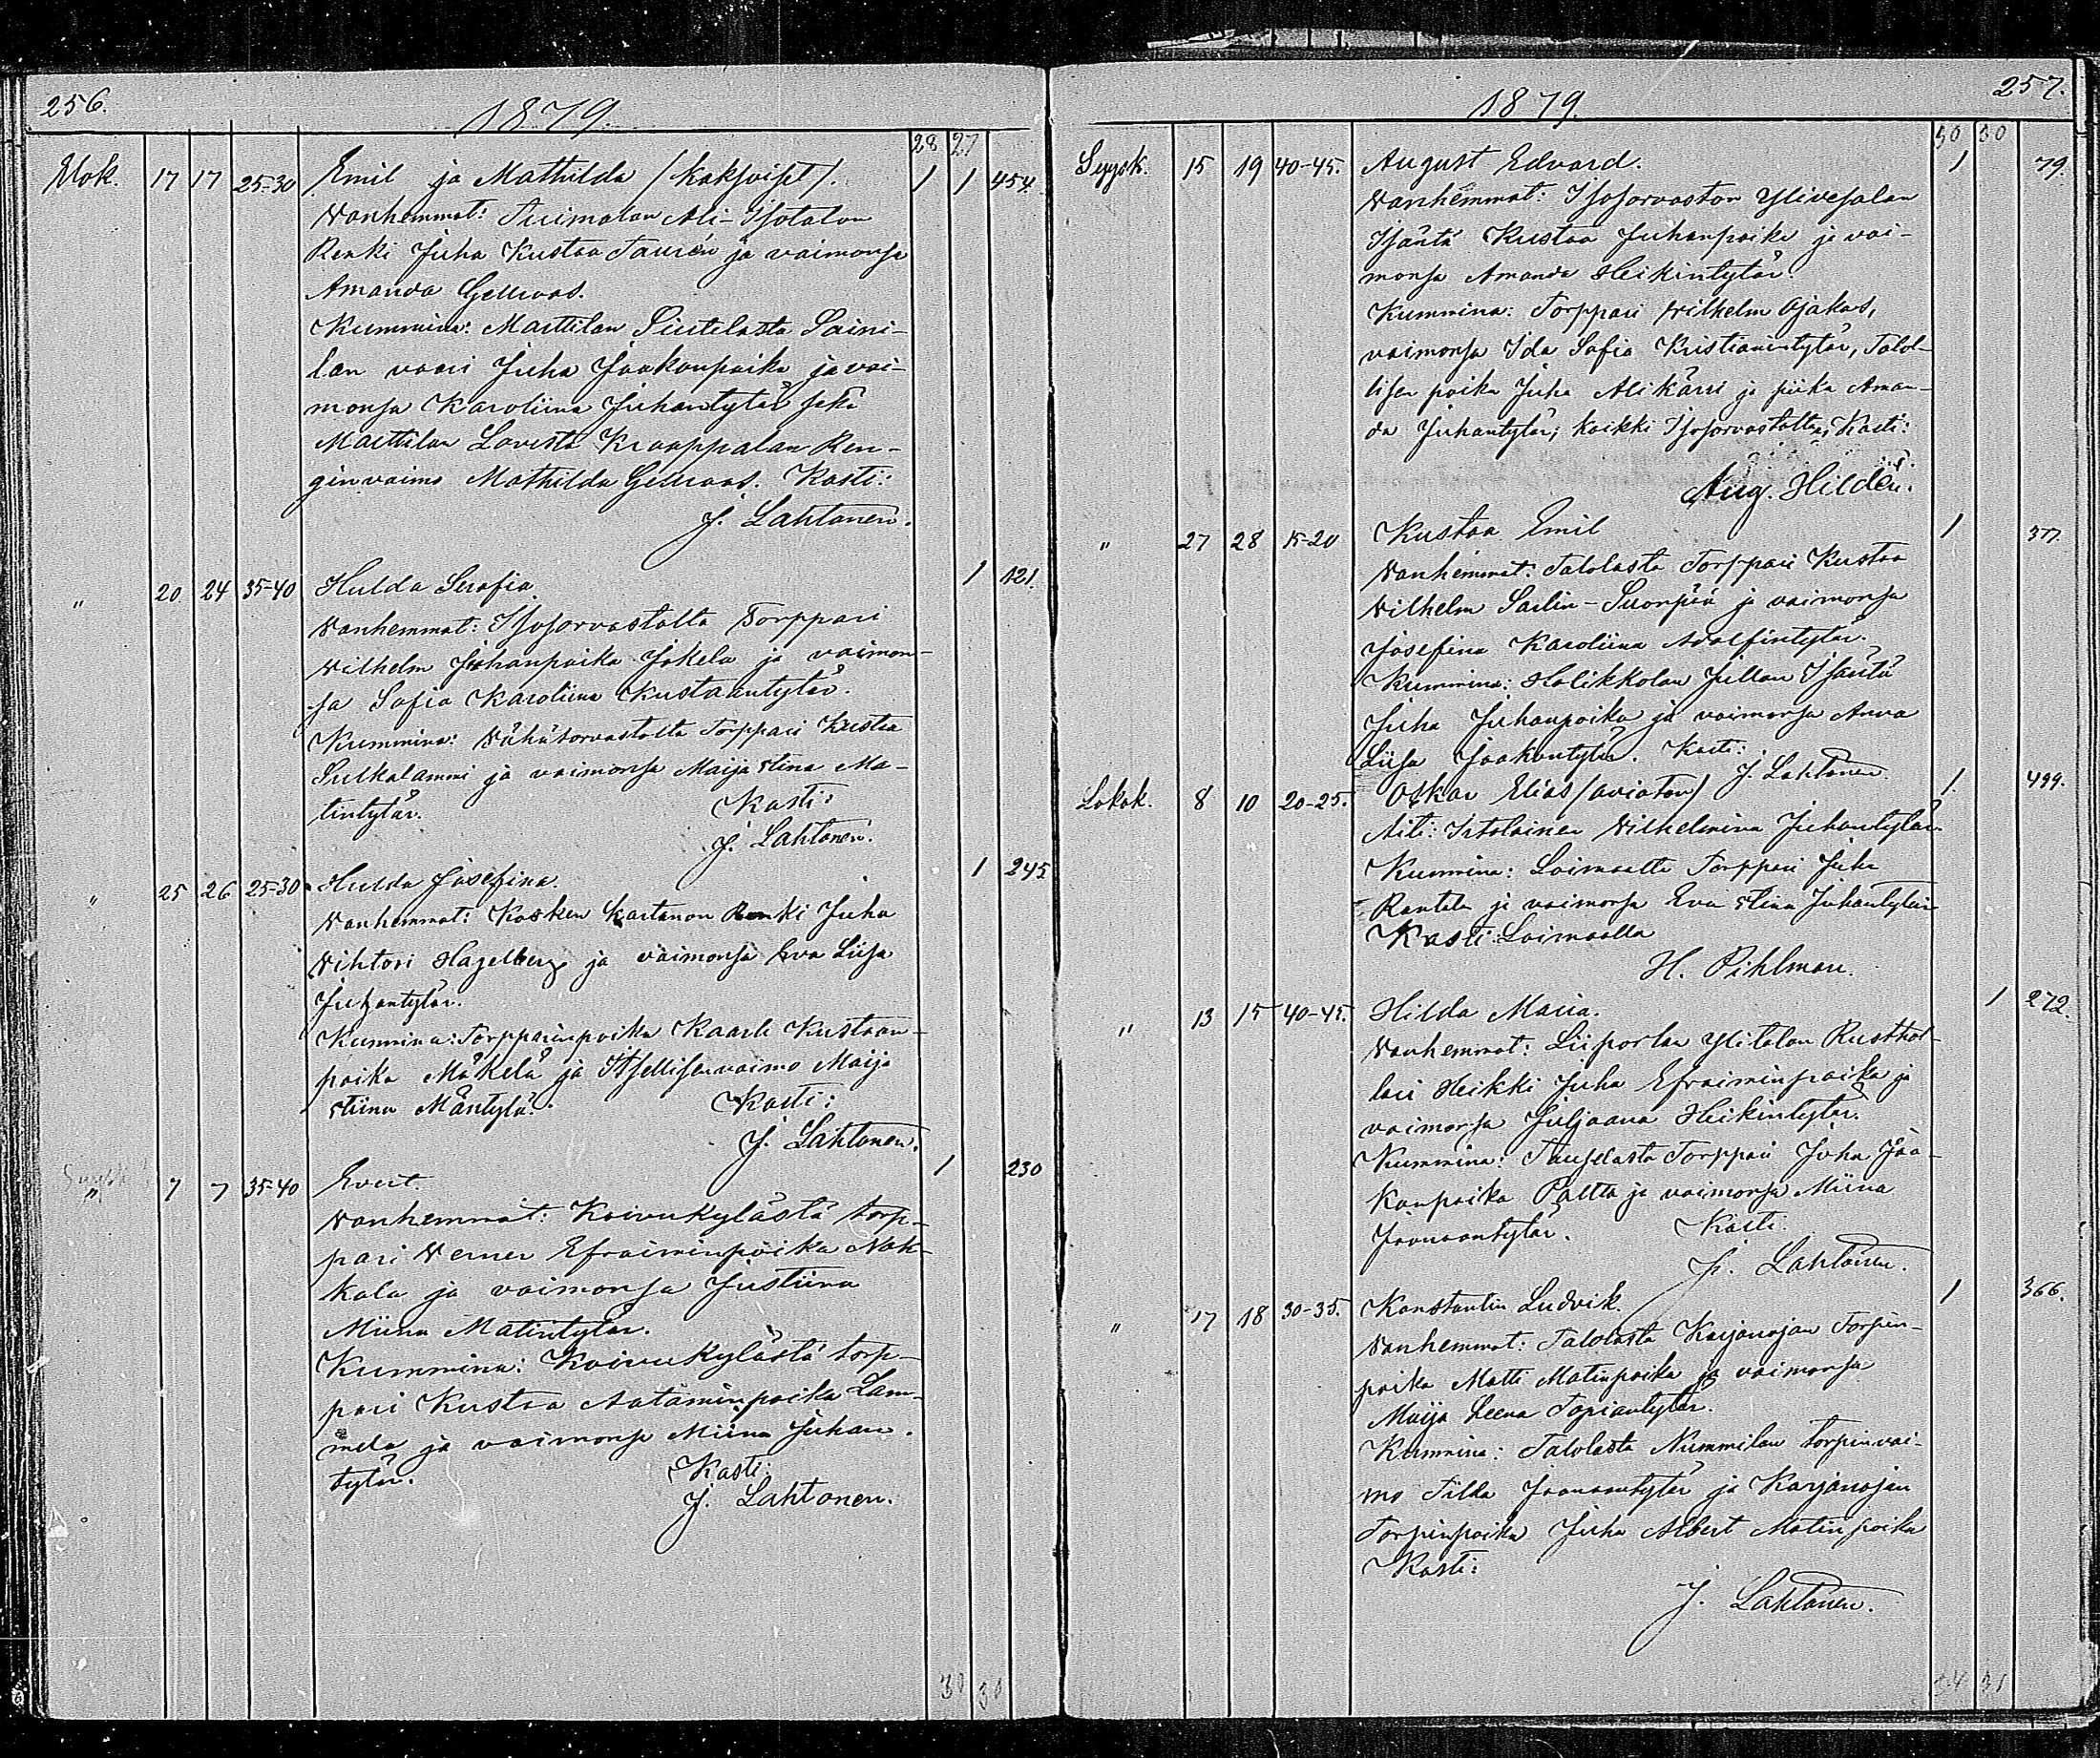 256.
1879.
28 27
Elok. 17 17 25-30 Emil ja Mathilda (kaksoiset). 1 1 454.
Vanhemmat: Tuimalan Ali-Isotalon
Renki Juha Kustaa Taurén ja vaimonsa
Amanda Gellroos.
Kummina: Marttilan
lan vaari Juha Jaakonpoika ja vai-
monsa Karoliina Juhantytär sekä
Marttilan Kraappalan Ren-
ginvaimo Mathilda Gellroos. Kasti:
J. Lahtonen.
" 20 24 35-40 Hulda Serafia. 1 121.
Vanhemmat: Isosorvastolta Torppari
Vilhelm Juhanpoika Jokela ja vaimon-
sa Sofia Karoliina Kustaantytär.
Kummina: Vähäsorvastolta Torppari Kustaa
Sulkalammi ja vaimonsa Maija Stina Ma-
tintytär. Kasti:
J. Lahtonen.
" 25 26 25-30 Hulda Josefina. 1 245
Vanhemmat: Kosken kartanon Renki Juha
Vihtori Hagelberg ja vaimonsa Eva Liisa
Juhantytär.
Kummina: Torpparinpoika Kaarle Kustaan-
poika Mäkelä ja Itsellisenvaimo Maija
Stiina Mäntylä. Kasti:
J. Lahtonen.
Syysk. " 7 7 35-40 Evert. 1 230
Vanhemmat: Koivukylästä torp-
pari Verner Efraiminpoika Nok-
kala ja vaimonsa Justiina
Miina Matintytär.
Kummina: Koivukylästä torp-
pari Kustaa Aataminpoika Lam-
mela ja vaimonsa Miina Juhan-
tytär. Kasti:
J. Lahtonen.
30 30
257.
1879.
30 30
Syysk. 15 19 40-45. August Edvard. 1 79.
Vanhemmat: Isosorvaston Ylivesalan
Isäntä Kustaa Juhanpoika ja vai-
monsa Amanda Heikintytär.
Kummina: Torppari Vilhelm Ojakas,
vaimonsa Ida Sofia Kristianintytär, Talol-
lisen poika Juha Alikärri ja piika Aman-
da Juhantytär; kaikki Isosorvastolta, Kasti:
Aug. Hildén.
" 27 28 15-20 Kustaa Emil 1 377.
Vanhemmat: Talolasta Torppari Kustaa
Vilhelm Sailin-Suonpää ja vaimonsa
Josefina Karoliina Adolfintytär.
Kummina: Halikkolan Jillan Isäntä
Juha Juhanpoika ja vaimonsa Anna
Liisa Jaakontytär. Kasti:
J. Lahtonen.
Lokak. 8 10 20-25. Oskar Elias (avioton) 1. 499.
Äiti: Irtolainen Vilhelmina Juhantytär.
Kummina: Loimaalta Torppari Juha
Rantala ja vaimonsa Eva Stina Juhantytär
Kasti: Loimaalla
H. Pihlman.
" 13 15 40-45. Hilda Maria. 1 272.
Vanhemmat: Liiporlan Ylitalon Rusthol-
lari Heikki Juha Efraiminpoika ja
vaimonsa Juljaana Heikintytär.
Kummina: Torppari Juha Jaa-
konpoika Paltta ja vaimonsa Miina
Joonaantytär. Kasti:
J. Lahtonen.
" 17 18 30-35. Konstantin Ludvik. 1 366.
Vanhemmat: Talolasta Karjanojan Torpin-
poika Matti Matinpoika ja vaimonsa
Maija Leena Topiantytär.
Kummina: Talolasta Nummilan torpinvai-
mo Tilda Joonaantytär ja Karjanojan
Torpinpoika Juha Albert Matinpoika
Kasti:
J. Lahtonen.
34 31